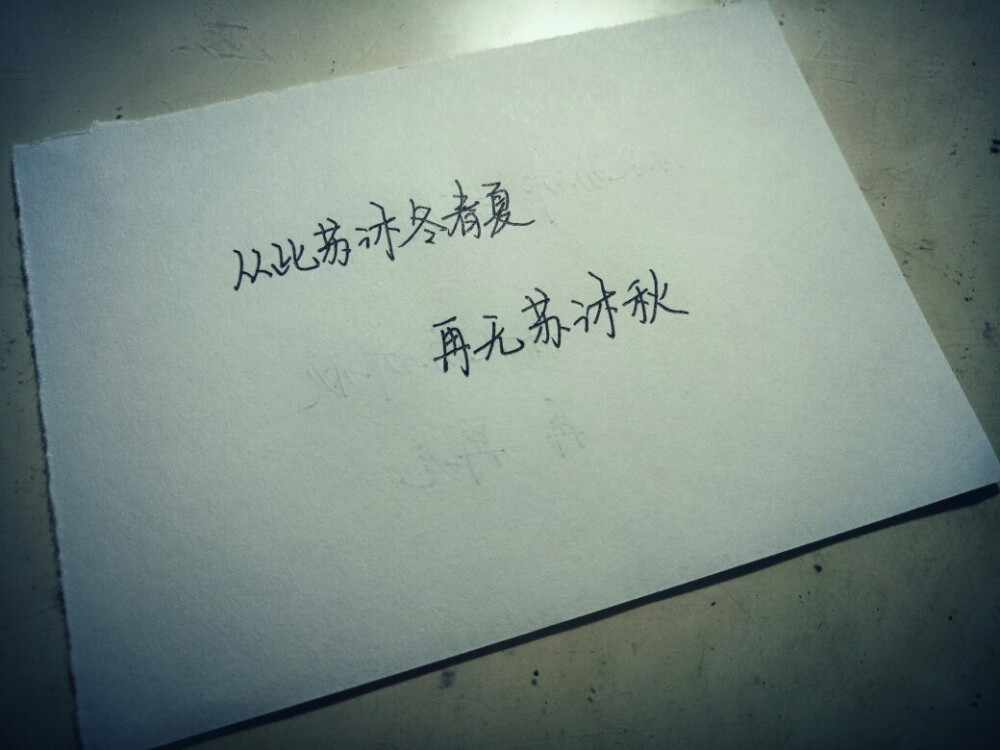 从此苏沐冬春夏
再无苏沐秋